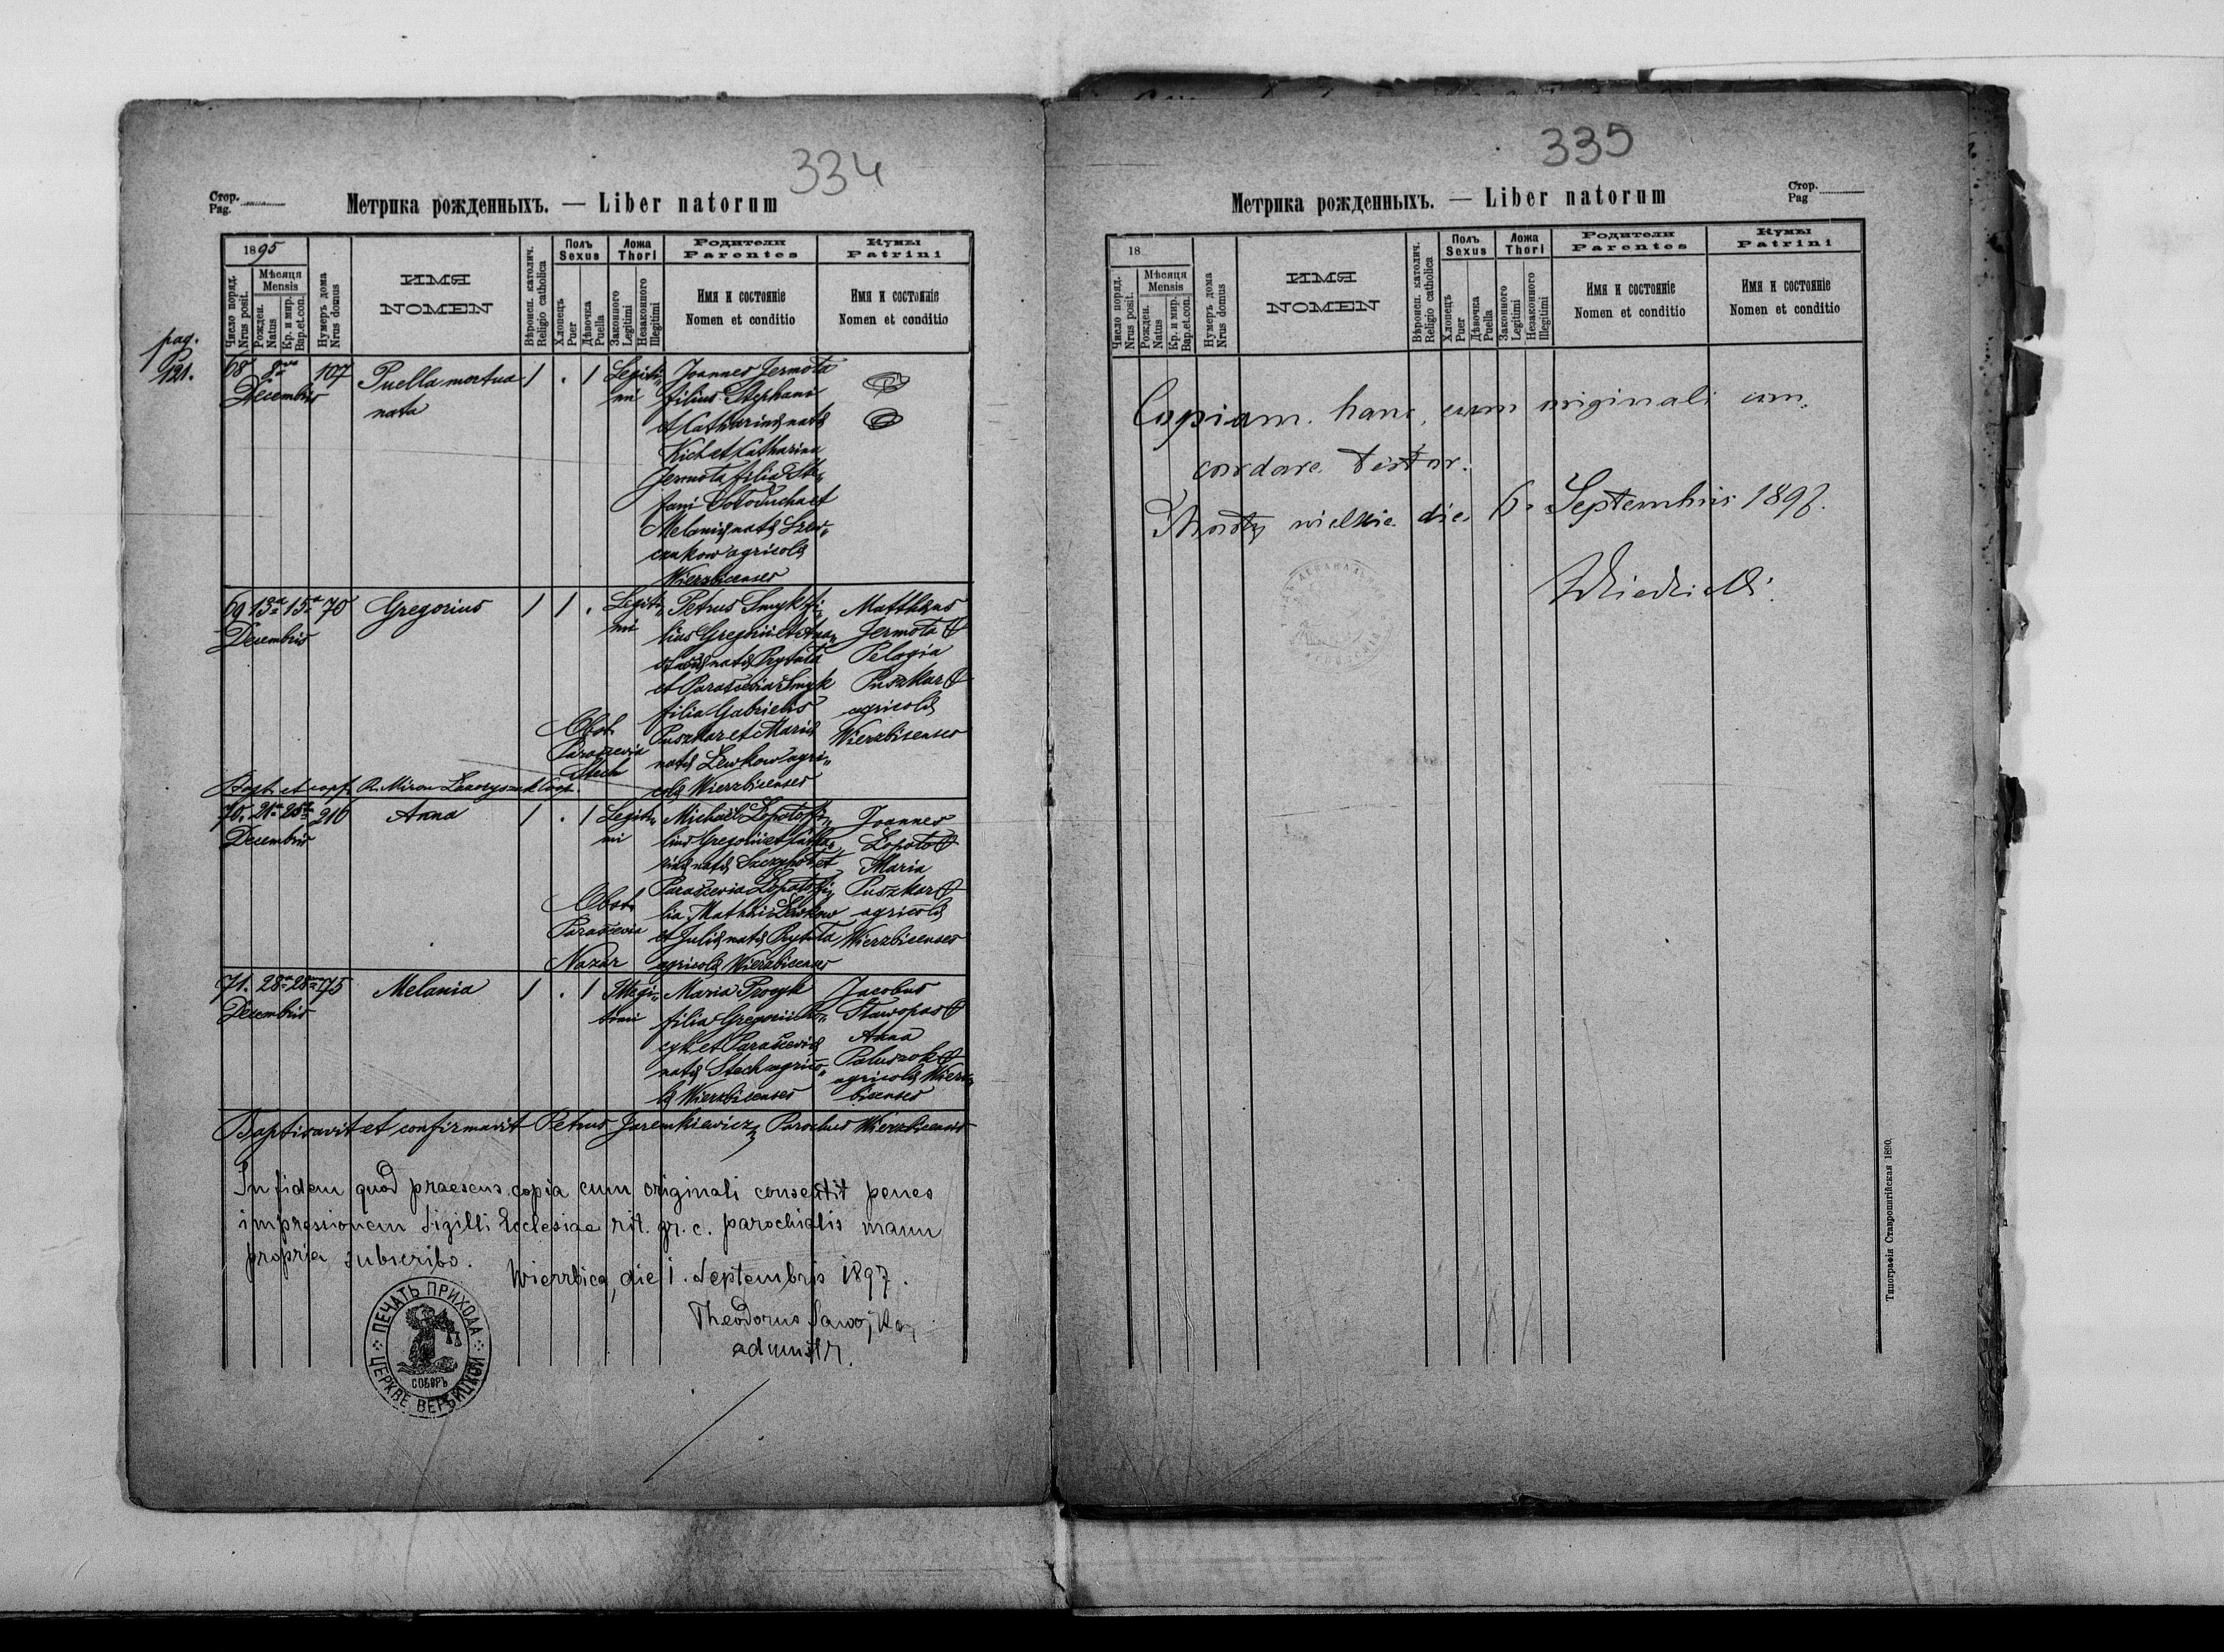 334
Стор.
Pag.
Метрика рожденныхъ. — Liber natorum
1895
Число поряд.
Nrus posit.
Мѣсяця
Mensis
Рожден.
Natus
Кр. и мир.
Bap.et.con.
Нумеръ дома
Nrus domus
ИМЯ
NOMEN
Вѣроисп. католич.
Religio catholica
Полъ
Sexus
Хлопецъ
Puer
Дѣвочка
Puella
Ложа
Thori
Законного
Legitimi
Незаконного
Illegitimi
Родители
Parentes
Имя и состояніе
Nomen et conditio
Кумы
Patrini
Имя и состояніе
Nomen et conditio
pag.
121.
68 8va 107
Decembris
Puella mortua
nata
1 . 1
Legiti„
mi
Joannes Jermota
filius Stephani
et Catharinæ natæ
Kich et Catharina
Jermota filia Ste„
fani Sołoducha et
Melaniæ natæ Szew„
czukow agricolæ
Wierzbicenses
69 13a 15a 70
Decembris
Gregorius
1 1 .
Legiti„
mi
Petrus Smyk fi„
lius Gregorii et Ana„
stasiæ natæ Prytuła
et Parascevia Smyk
filia Gabrielis
Puszkar et Mariæ
natæ Lewkow agri„
colæ Wierzbicenses
Matthæus
Jermota &
Pelagia
Puszkar &
agricolæ
Wierzbicenses
Obst.
Parascevia
Stech
Bapt. et conf. R. Miron Coop.
70. 21a 25a 216
Decembris
Anna
1 . 1
Legiti„
mi
Michaël Łopoto fi„
lius Gregorii et Catha„
rinæ natæ et
Parascevia Łopoto fi„
lia Mathæi Lewkow
et Juliæ natæ Prytuła
agricolæ Wierzbicenses
Joannes
Łopoto &
Maria
Puszkar &
agricolæ
Wierzbicenses
Obst.
Parascevia
Nazar
71. 28a 28va 175
Decembris
Melania
1 . 1
Illegi„
timi
Maria Procyk
filia Gregorii Pro„
cyk et Parasceviæ
natæ Stech agrico„
læ Wierzbicenses
Jacobus
Stawopas &
Anna
Paluszok &
agricolæ Wierz„
bicenses
Baptisavit et confirmavit Petrus Juremkiewicz, Parochus Wierzbicensis
In fidem quod praesens copia cum originali consentit penes
impressionem sigilli Ecclesiae rit. gr. c. parochialis manu
propria subscribo.
Wierzbica, die 1. Septembris 1897.
Theodorus Sawojka,
administr.
ПЕЧАТЬ ПРИХОДА
ЦЕРКВЕ ВЕРБИЦКОИ
СОБОРЪ
335
Стор.
Pag
Метрика рожденныхъ. — Liber natorum
18
Число поряд.
Nrus posit.
Мѣсяця
Mensis
Рожден.
Natus
Кр. и мир.
Bap.et.con.
Нумеръ дома
Nrus domus
ИМЯ
NOMEN
Вѣроисп. католич.
Religio catholica
Полъ
Sexus
Хлопецъ
Puer
Дѣвочка
Puella
Ложа
Thori
Законного
Legitimi
Незаконного
Illegitimi
Родители
Parentes
Имя и состояніе
Nomen et conditio
Кумы
Patrini
Имя и состояніе
Nomen et conditio
Copiam hanc cum originali con„
cordare testor.
Mosty wielkie die 6. Septembris 1897.
Типографія Ставропигійская 1890.